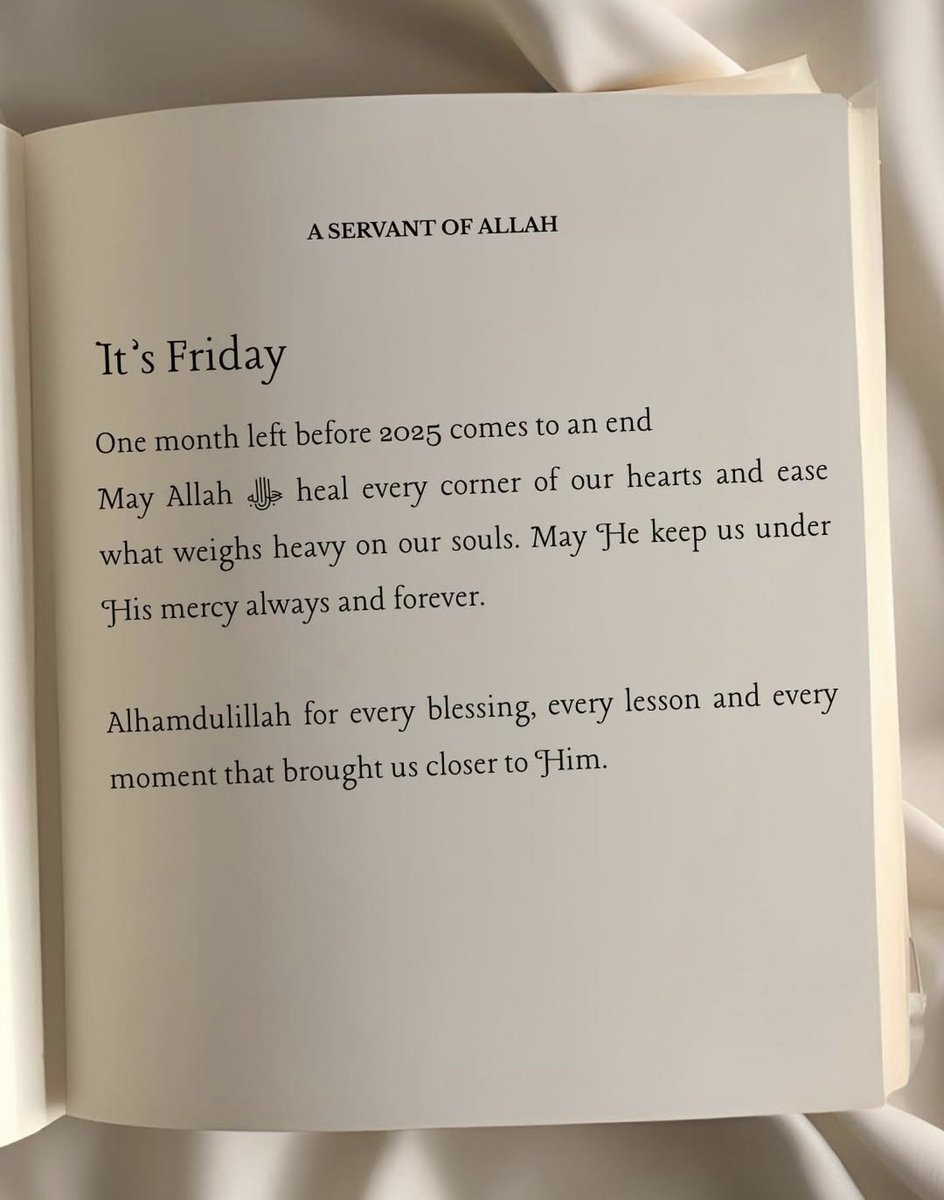 A SERVANT OF ALLAH
It's Friday
One month left before 2025 comes to an end
May Allah ﷻ heal every corner of our hearts and ease
what weighs heavy on our souls. May He keep us under
His mercy always and forever.
Alhamdulillah for every blessing, every lesson and every
moment that brought us closer to Him.